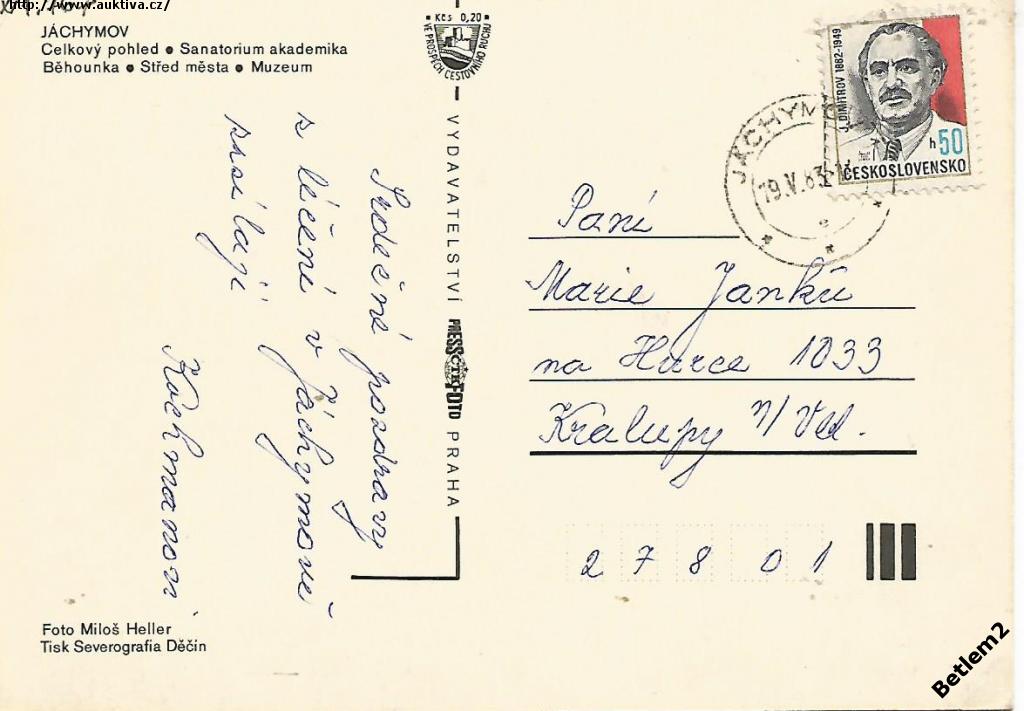 http://www.auktiva.cz/
JÁCHYMOV
Celkový pohled • Sanatorium akademika
Běhounka • Střed města • Muzeum
Srdečné pozdravy
z léčení v Jáchymově
zasílají
Kochmanovi
Foto Miloš Heller
Tisk Severografia Děčín
• Kčs 0,20 •
VE PROSPĚCH CESTOVNÍHO RUCHU
VYDAVATELSTVÍ PRESSFOTO PRAHA
ČTK
J. DIMITROV 1882-1949
h 50
ČESKOSLOVENSKO
JÁCHYMOV
19.V.83
Paní
Marie Janků
na Hurce 1033
Kralupy n/Vlt.
278 01
Betlem2